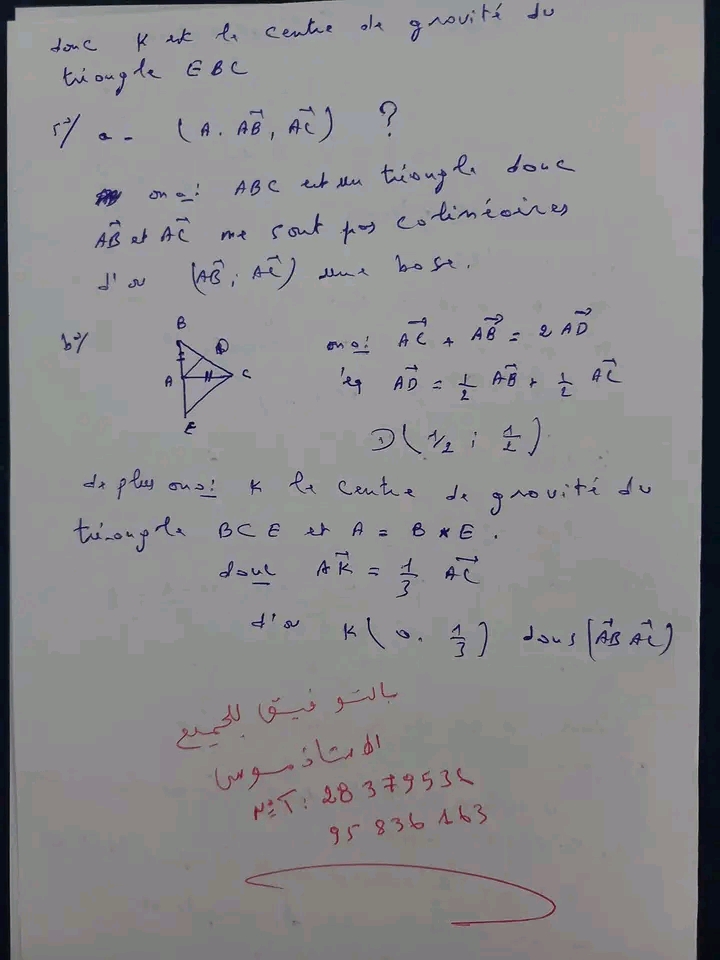 donc K est le centre de gravité du
triangle EBC
5°/ a - (A, AB⃗, AC⃗) ?
on a: ABC est un triangle donc
AB⃗ et AC⃗ ne sont pas colinéaires
d'où (AB⃗; AC⃗) une base.
b°/
B
D
A
C
E
on a: AC⃗ + AB⃗ = 2 AD⃗
AD⃗ = 1/2 AB⃗ + 1/2 AC⃗
D(1/2 ; 1/2)
de plus on a: K le centre de gravité du
triangle BCE et A = B * E.
donc AK⃗ = 1/3 AC⃗
d'où K(0, 1/3) dans (AB⃗ AC⃗)
بالتوفيق للجميع
الاستاذ موسى
N°T: 28 379 532
95 836 163